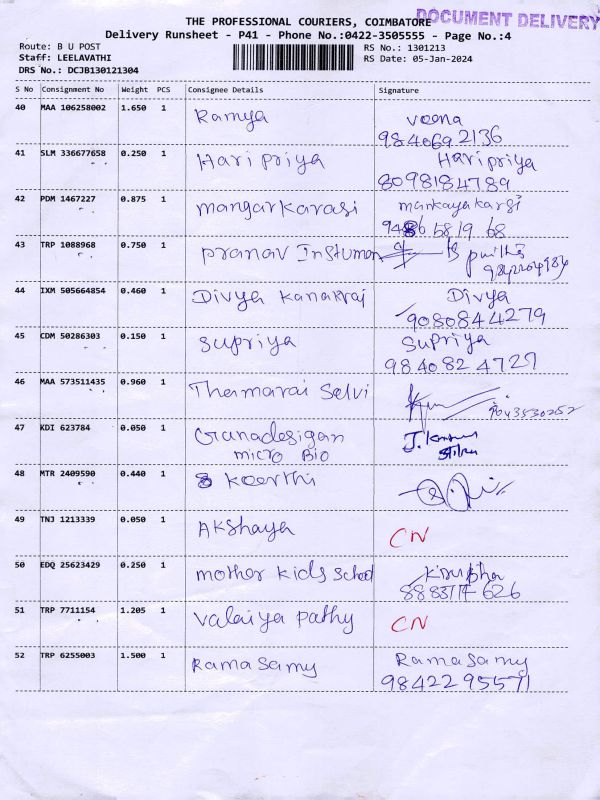 THE PROFESSIONAL COURIERS, COIMBATORE
DOCUMENT DELIVERY
Delivery Runsheet - P41 - Phone No.:0422-3505555 - Page No.:4
Route: B U POST
RS No.: 1301213
Staff: LEELAVATHI
RS Date: 05-Jan-2024
DRS No.: DCJB130121304
S No Consignment No Weight PCS Consignee Details Signature
40 MAA 106258002 1.650 1 Ramya Veena
984069 2136
41 SLM 336677658 0.250 1 Hari priya Haripriya
8098184789
42 PDM 1467227 0.875 1 mangarkarasi mankayakarsi
9486 5819 68
43 TRP 1088968 0.750 1 pranav Instumen
44 IXM 505664854 0.460 1 Divya kanakraj Divya
9080844279
45 CDM 50286303 0.150 1 Supriya Supriya
98408 24727
46 MAA 573511435 0.960 1 Thamarai Selvi
9043530252
47 KDI 623784 0.050 1 Gnanadesigan
micro Bio
48 MTR 2409590 0.440 1 Keerthi
49 TNJ 1213339 0.050 1 Akshaya CN
50 EDQ 25623429 0.250 1 mother kids School Kirubha
626
51 TRP 7711154 1.205 1 Valaiya pathy CN
52 TRP 6255003 1.500 1 Rama Samy Rama Samy
98422 95571